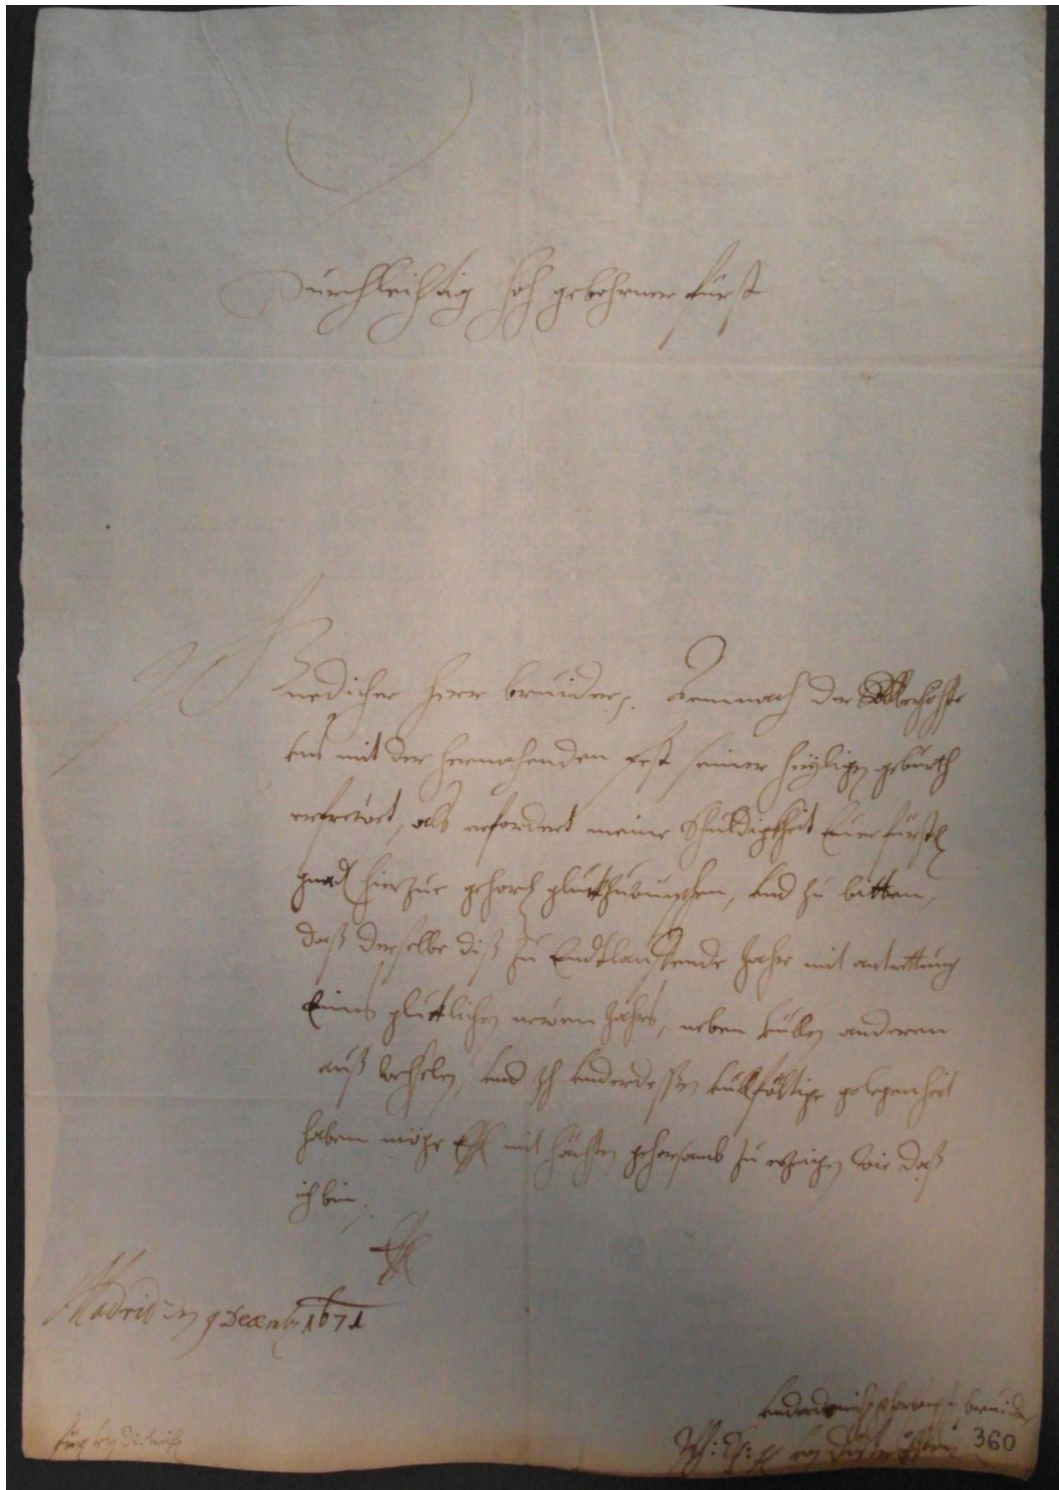 Durchleichtig hoch gebohrner fürst
Gnedicher herr bruider, Demnach der Allerhöhste
uns mit der hernachenden fest seiner heyligen geburth
erfrewet, als erfordert meine Schuldigkheit Euer fürstl
gnad hierzue gehors glukhzuwunschen, und zu bitten,
daß dieselbe diß zu Endtlauffende Jahr mit antrettung
Eines gluklichen newen Jahrs, neben villen anderen
auß wehslen, und ich underdessen villfältige gelegenheit
haben möge EfG mit höchsten gehorsamb zu erzeigen wie daß
ich bin
EfG
Madrid den 9 Decemb 1671
bruider
fürst von Dietrichst
360